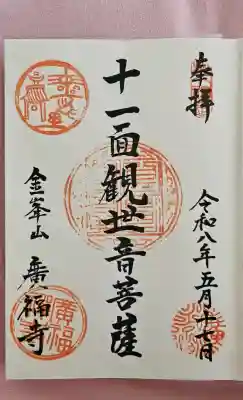 奉拝
令和八年五月十七日
十一面観世音菩薩
金峯山
廣福寺
廣福